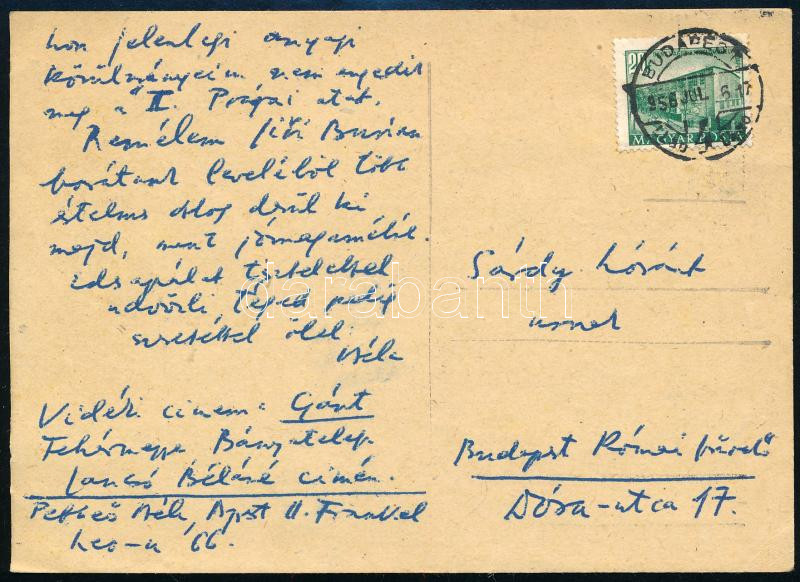 hon jelenlegi anyagi
körülményeim nem engedik
meg a II. Prágai utat.
Remélem Jiří
barátunk leveléből több
értelmes dolog derül ki
majd, mint jómagamétól.
Édsapádat tisztelettel
üdvözli, Téged pedig
szeretettel ölel
Béla
Vidéki címem: Gánt
Fehérmegye, Bányatelep
Jancsó Béláné címén.
Petheő Béla, Bpest II. Frankel
Leo-u 66.
BUDAPEST
956 JUL. 6 17
MAGYAR POSTA
Sárdy Lóránt
úrnak
Budapest Római fürdő
Dósa-utca 17.
darabanth